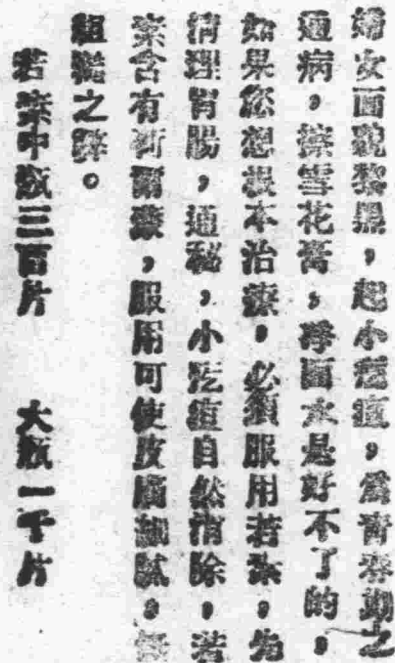 婦女面貌黎黑，起小疙疸，為青春期之
通病，搽雪花膏，淨面水是好不了的，
如果您想根本治療，必須服用若素，先
清理胃腸，通秘，小疙疸自然消除，若
素含有荷爾蒙，服用可使皮膚細膩，無
粗糙之弊。
若素中瓶三百片　大瓶一千片